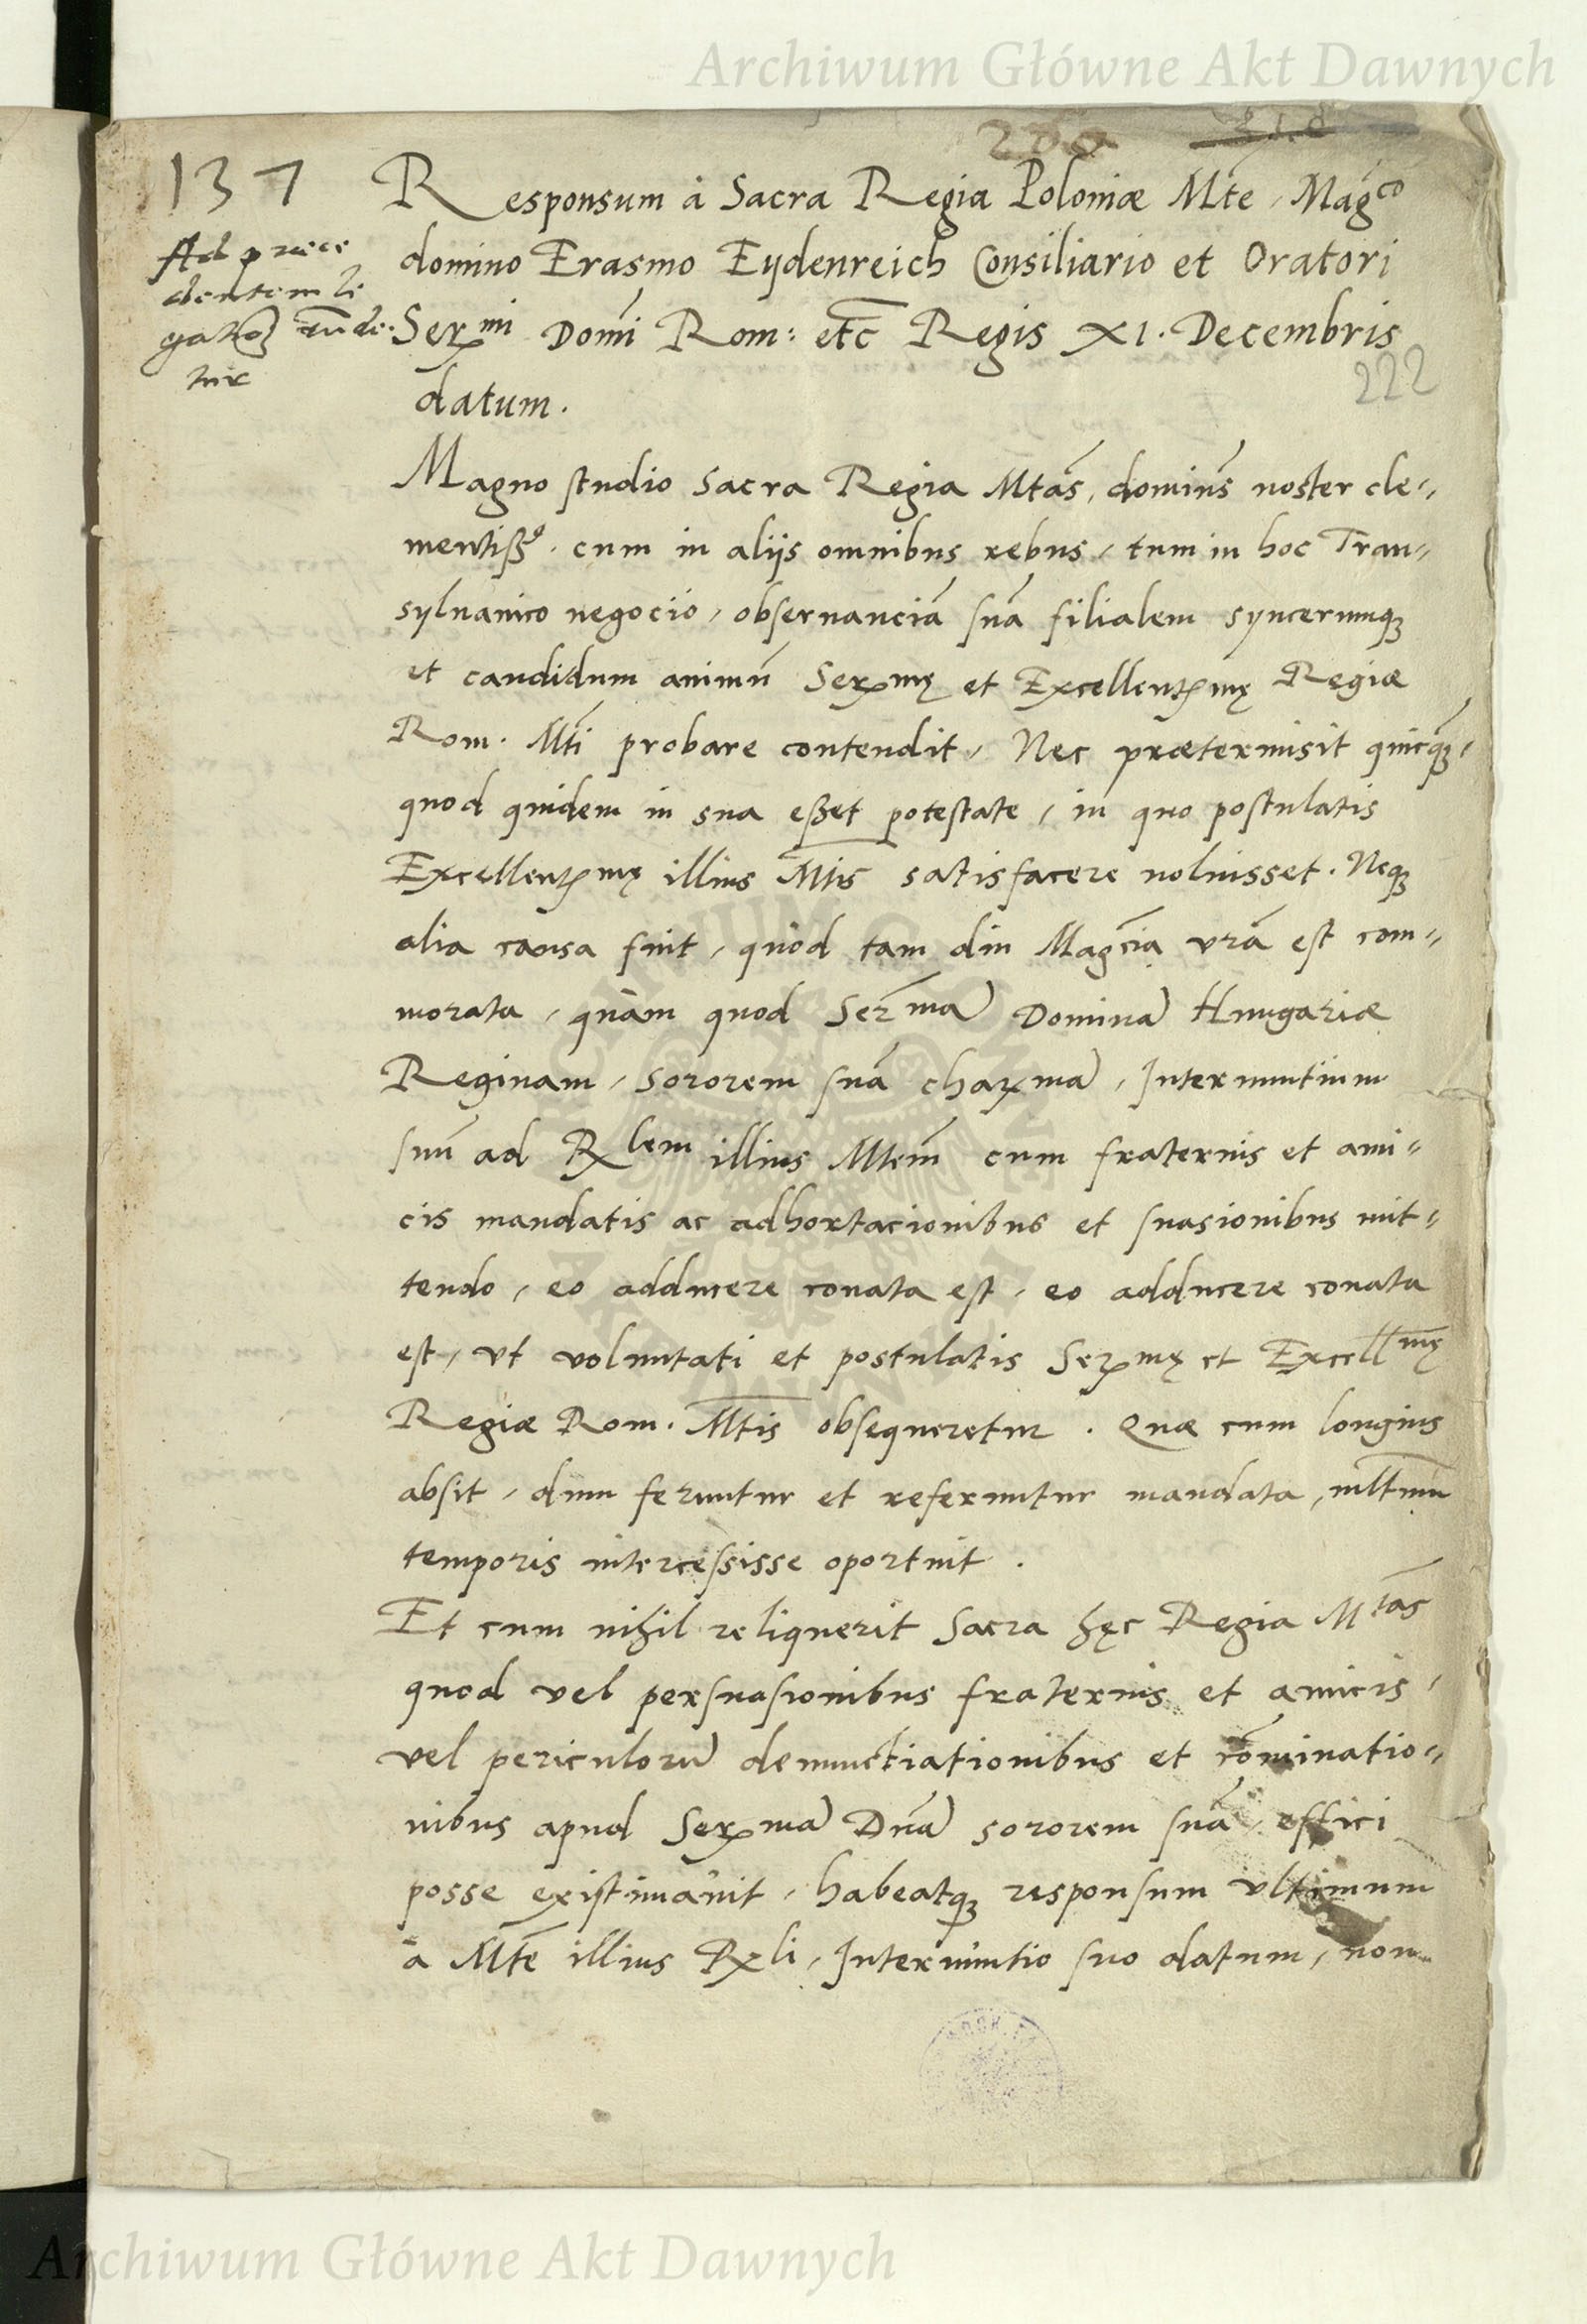 Archiwum Główne Akt Dawnych
137
Responsum à Sacra Regia Poloniæ Mte, Magco
domino Erasmo Eydenreich Consiliario et Oratori
Sermi Domi Rom: etc Regis XI. Decembris
datum.
Ad prece
dentem le
222
Magno studio Sacra Regia Mtas, dominus noster cle-
mentiss. cum in alijs omnibus rebus, tum in hoc Tran-
syluanico negocio, obseruanciā suā filialem syncerumq
et candidum animū Sermę et Excellentmę Regiæ
Rom. Mti probare contendit, Nec prætermisit quicq,
quod quidem in sua esset potestate, in quo postulatis
Excellentmę illius Mtis satisfacere noluisset. Neq
alia causa fuit, quòd tam diu Magcia vrā est com-
morata, quàm quod Sermā Dominā Hungariæ
Reginam, sororem suā charmā, Internuntium
suū ad Rlem illius Mtem cum fraternis et ami-
cis mandatis ac adhortacionibus et suasionibus mit-
tendo, eo adducere conata est, eo adducere conata
est, vt voluntati et postulatis Sermę et Excellmę
Regiæ Rom. Mtis obsequeretur. Quæ cum longius
absit, dum feruntur et referuntur mandata, multum
temporis intercessisse oportuit.
Et cum nihil reliquerit Sacra hęc Regia Mtas
quod vel persuasionibus fraternis et amicis,
vel periculorū denunctiationibus et cōminatio-
nibus apud Sermā Dnā sororem suā, effici
posse existimauit, habeatq responsum vltimum
à Mte illius Rli, Internuntio suo datum, non
Archiwum Główne Akt Dawnych